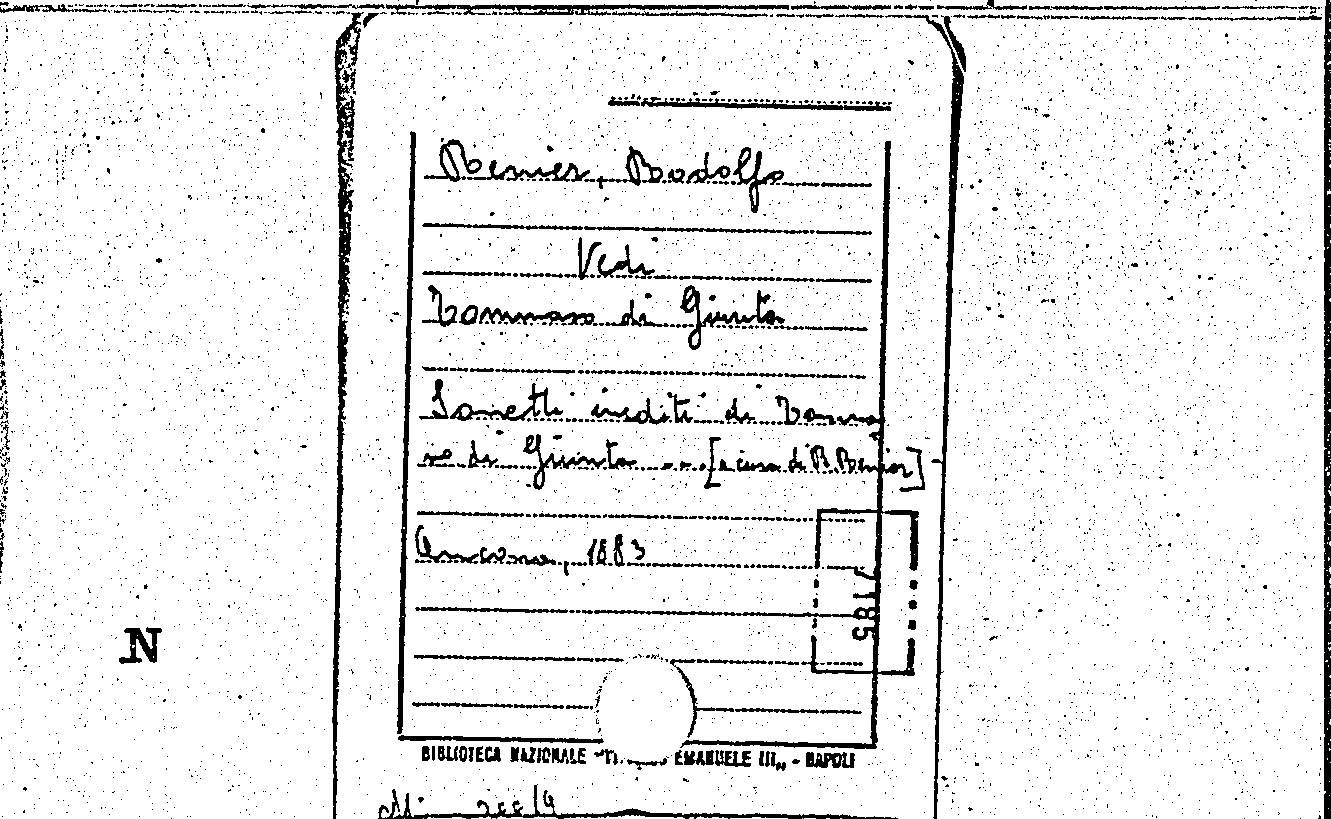 Renier, Rodolfo
Vedi
Tommaso di Giunta
Sonetti inediti di Tomma
so di Giunta ... [a cura di R. Renier]
Ancona, 1883
7185
N
BIBLIOTECA NAZIONALE EMANUELE III,, - NAPOLI